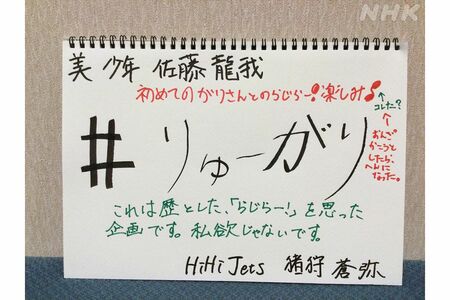 NHK
美 少年 佐藤 龍我
初めてのがりさんとのらじらー!楽しみ♪
↑
コレた?
# りゅーがり
↑
おんぷ
かこうと
したら、
へんに
なった。
これは歴とした、「らじらー!」を思った
企画です。私欲じゃないです。
HiHi Jets 猪狩 蒼弥